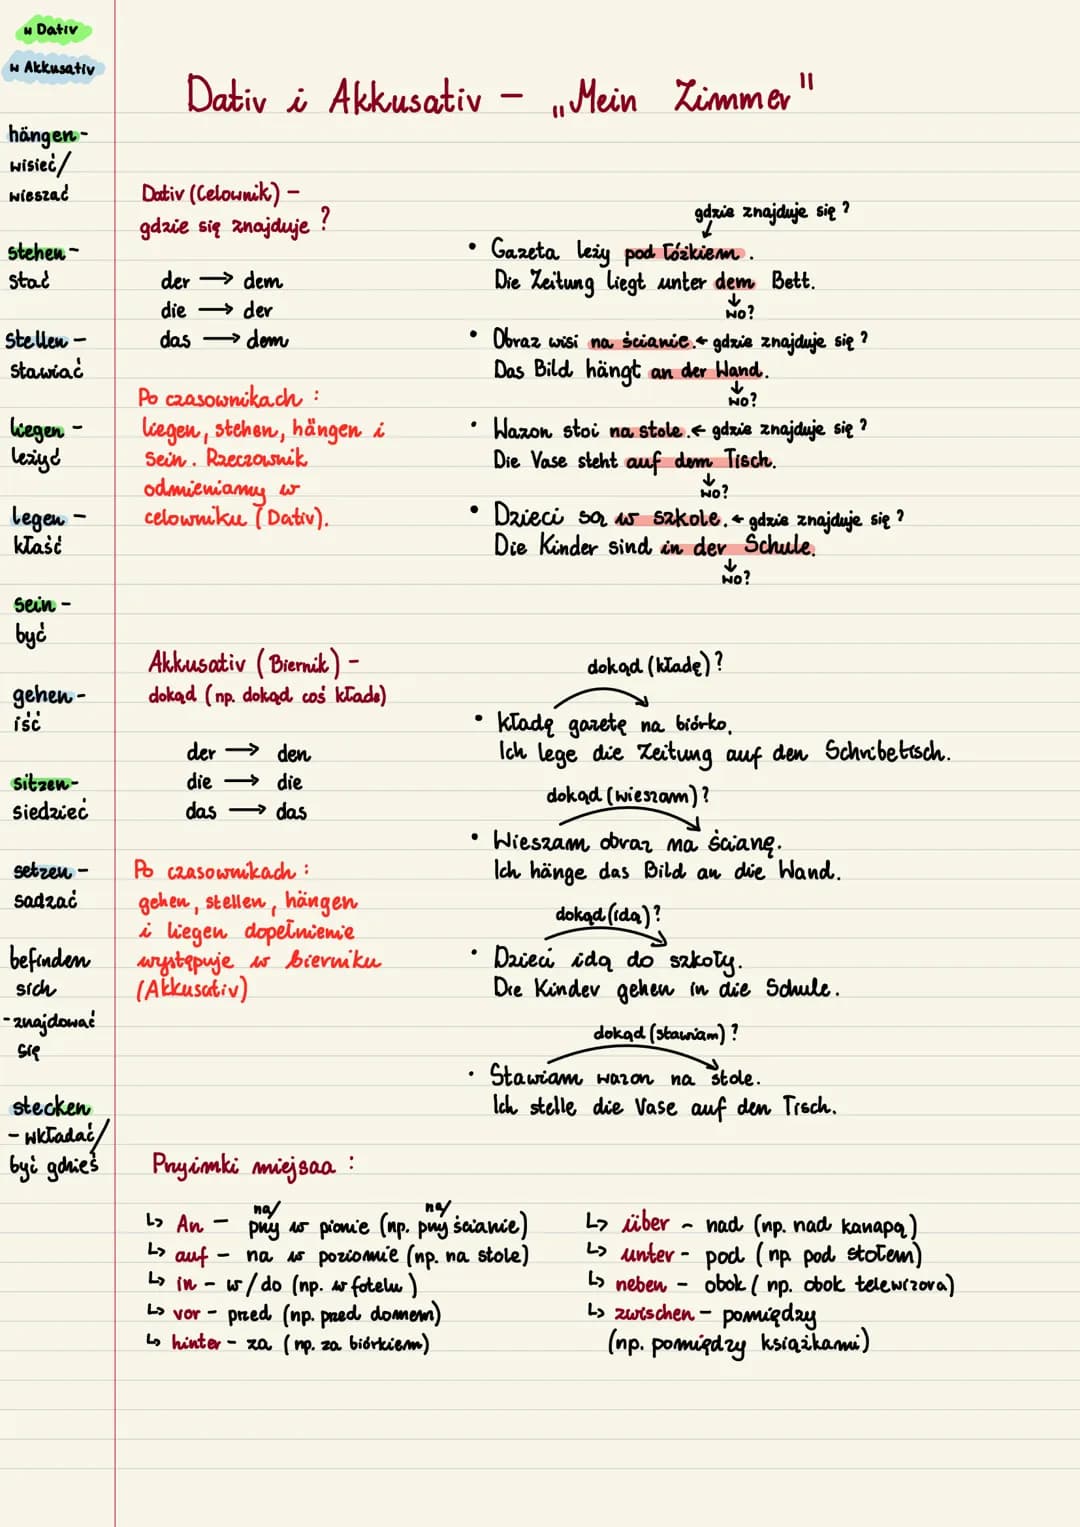 w Dativ
w Akkusativ
Dativ i Akkusativ – „Mein Zimmer"
hängen -
wisieć/
wieszać
stehen -
stać
stellen -
stawiać
liegen -
leżyć
legen -
kłaść
sein -
być
gehen -
iść
sitzen -
siedzieć
setzen -
sadzać
befinden
sich
- znajdować
się
stecken
- wkładać/
być gdzieś
Dativ (Celownik) -
gdzie się znajduje ?
der → dem
die → der
das → dem
Po czasownikach :
liegen, stehen, hängen i
sein. Rzeczownik
odmieniamy w
celowniku (Dativ).
gdzie znajduje się ?
• Gazeta leży pod łóżkiem.
Die Zeitung liegt unter dem Bett.
wo?
• Obraz wisi na ścianie. ← gdzie znajduje się ?
Das Bild hängt an der Wand.
wo?
• Wazon stoi na stole. ← gdzie znajduje się ?
Die Vase steht auf dem Tisch.
wo?
• Dzieci są w szkole. ← gdzie znajduje się ?
Die Kinder sind in der Schule.
wo?
Akkusativ (Biernik) -
dokąd (np. dokąd coś kłade)
der → den
die → die
das → das
Po czasownikach :
gehen, stellen, hängen
i liegen dopełnienie
występuje w bierniku
(Akkusativ)
dokąd (kładę) ?
• kładę gazetę na biórko.
Ich lege die Zeitung auf den Schribetisch.
dokąd (wieszam) ?
• Wieszam obraz na ścianę.
Ich hänge das Bild an die Wand.
dokąd (idą) ?
• Dzieci idą do szkoły.
Die Kinder gehen in die Schule.
dokąd (stawiam) ?
• Stawiam wazon na stole.
Ich stelle die Vase auf den Tisch.
Przyimki miejsca :
na/ na/
↳ An - przy w pionie (np. przy ścianie)
↳ auf - na w poziomie (np. na stole)
↳ in - w/do (np. w fotelu)
↳ vor - przed (np. przed domem)
↳ hinter - za (np. za biórkiem)
↳ über - nad (np. nad kanapą)
↳ unter - pod (np. pod stołem)
↳ neben - obok (np. obok telewizora)
↳ zwischen - pomiędzy
(np. pomiędzy książkami)